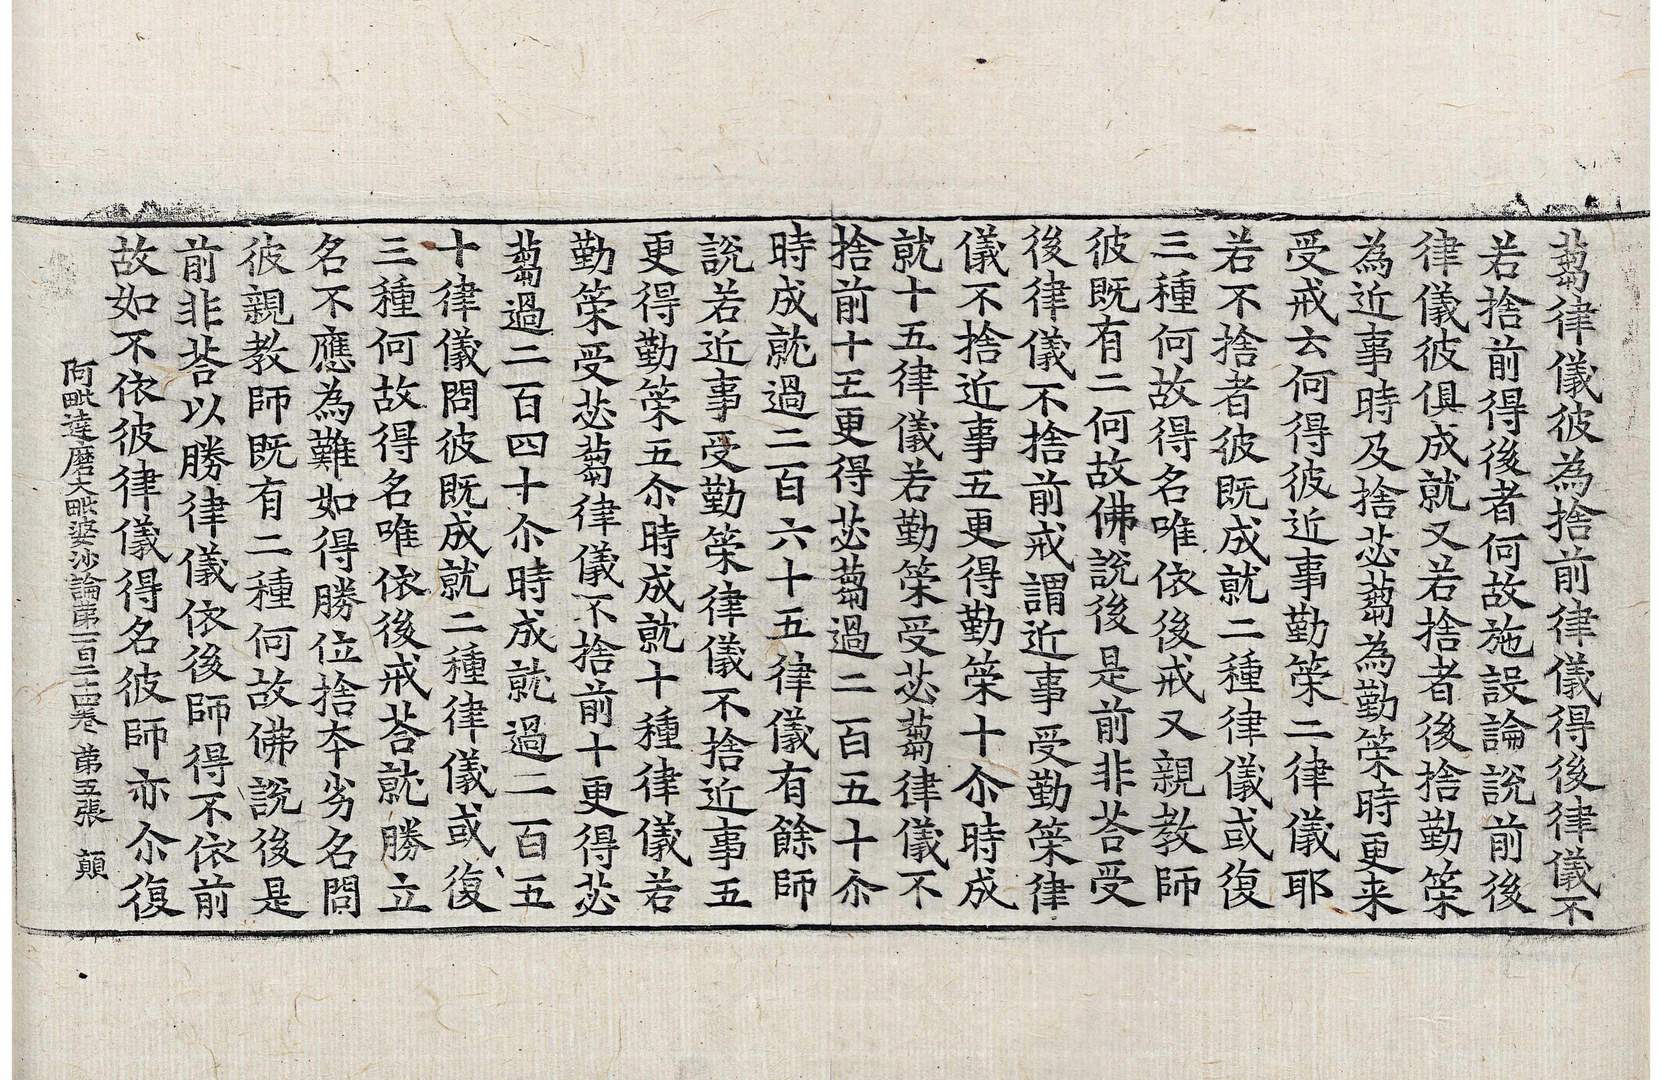 蒭律儀彼為捨前律儀得後律儀不
若捨前得後者何故施設論說前後
律儀彼俱成就又若捨者後捨勤策
為近事時及捨苾蒭為勤策時更来
受戒云何得彼近事勤策二律儀耶
若不捨者彼既成就二種律儀或復
三種何故得名唯依後戒又親教師
彼既有二何故佛說後是前非荅受
後律儀不捨前戒謂近事受勤策律
儀不捨近事五更得勤策十尒時成
就十五律儀若勤策受苾蒭律儀不
捨前十五更得苾蒭過二百五十尒
時成就過二百六十五律儀有餘師
說若近事受勤策律儀不捨近事五
更得勤策五尒時成就十種律儀若
勤策受苾蒭律儀不捨前十更得苾
蒭過二百四十尒時成就過二百五
十律儀問彼既成就二種律儀或復
三種何故得名唯依後戒荅就勝立
名不應為難如得勝位捨夲劣名問
彼親教師既有二種何故佛說後是
前非荅以勝律儀依後師得不依前
故如不依彼律儀得名彼師亦尒復
阿毗達磨大毗婆沙論苐一百二十四卷 苐五張 顛